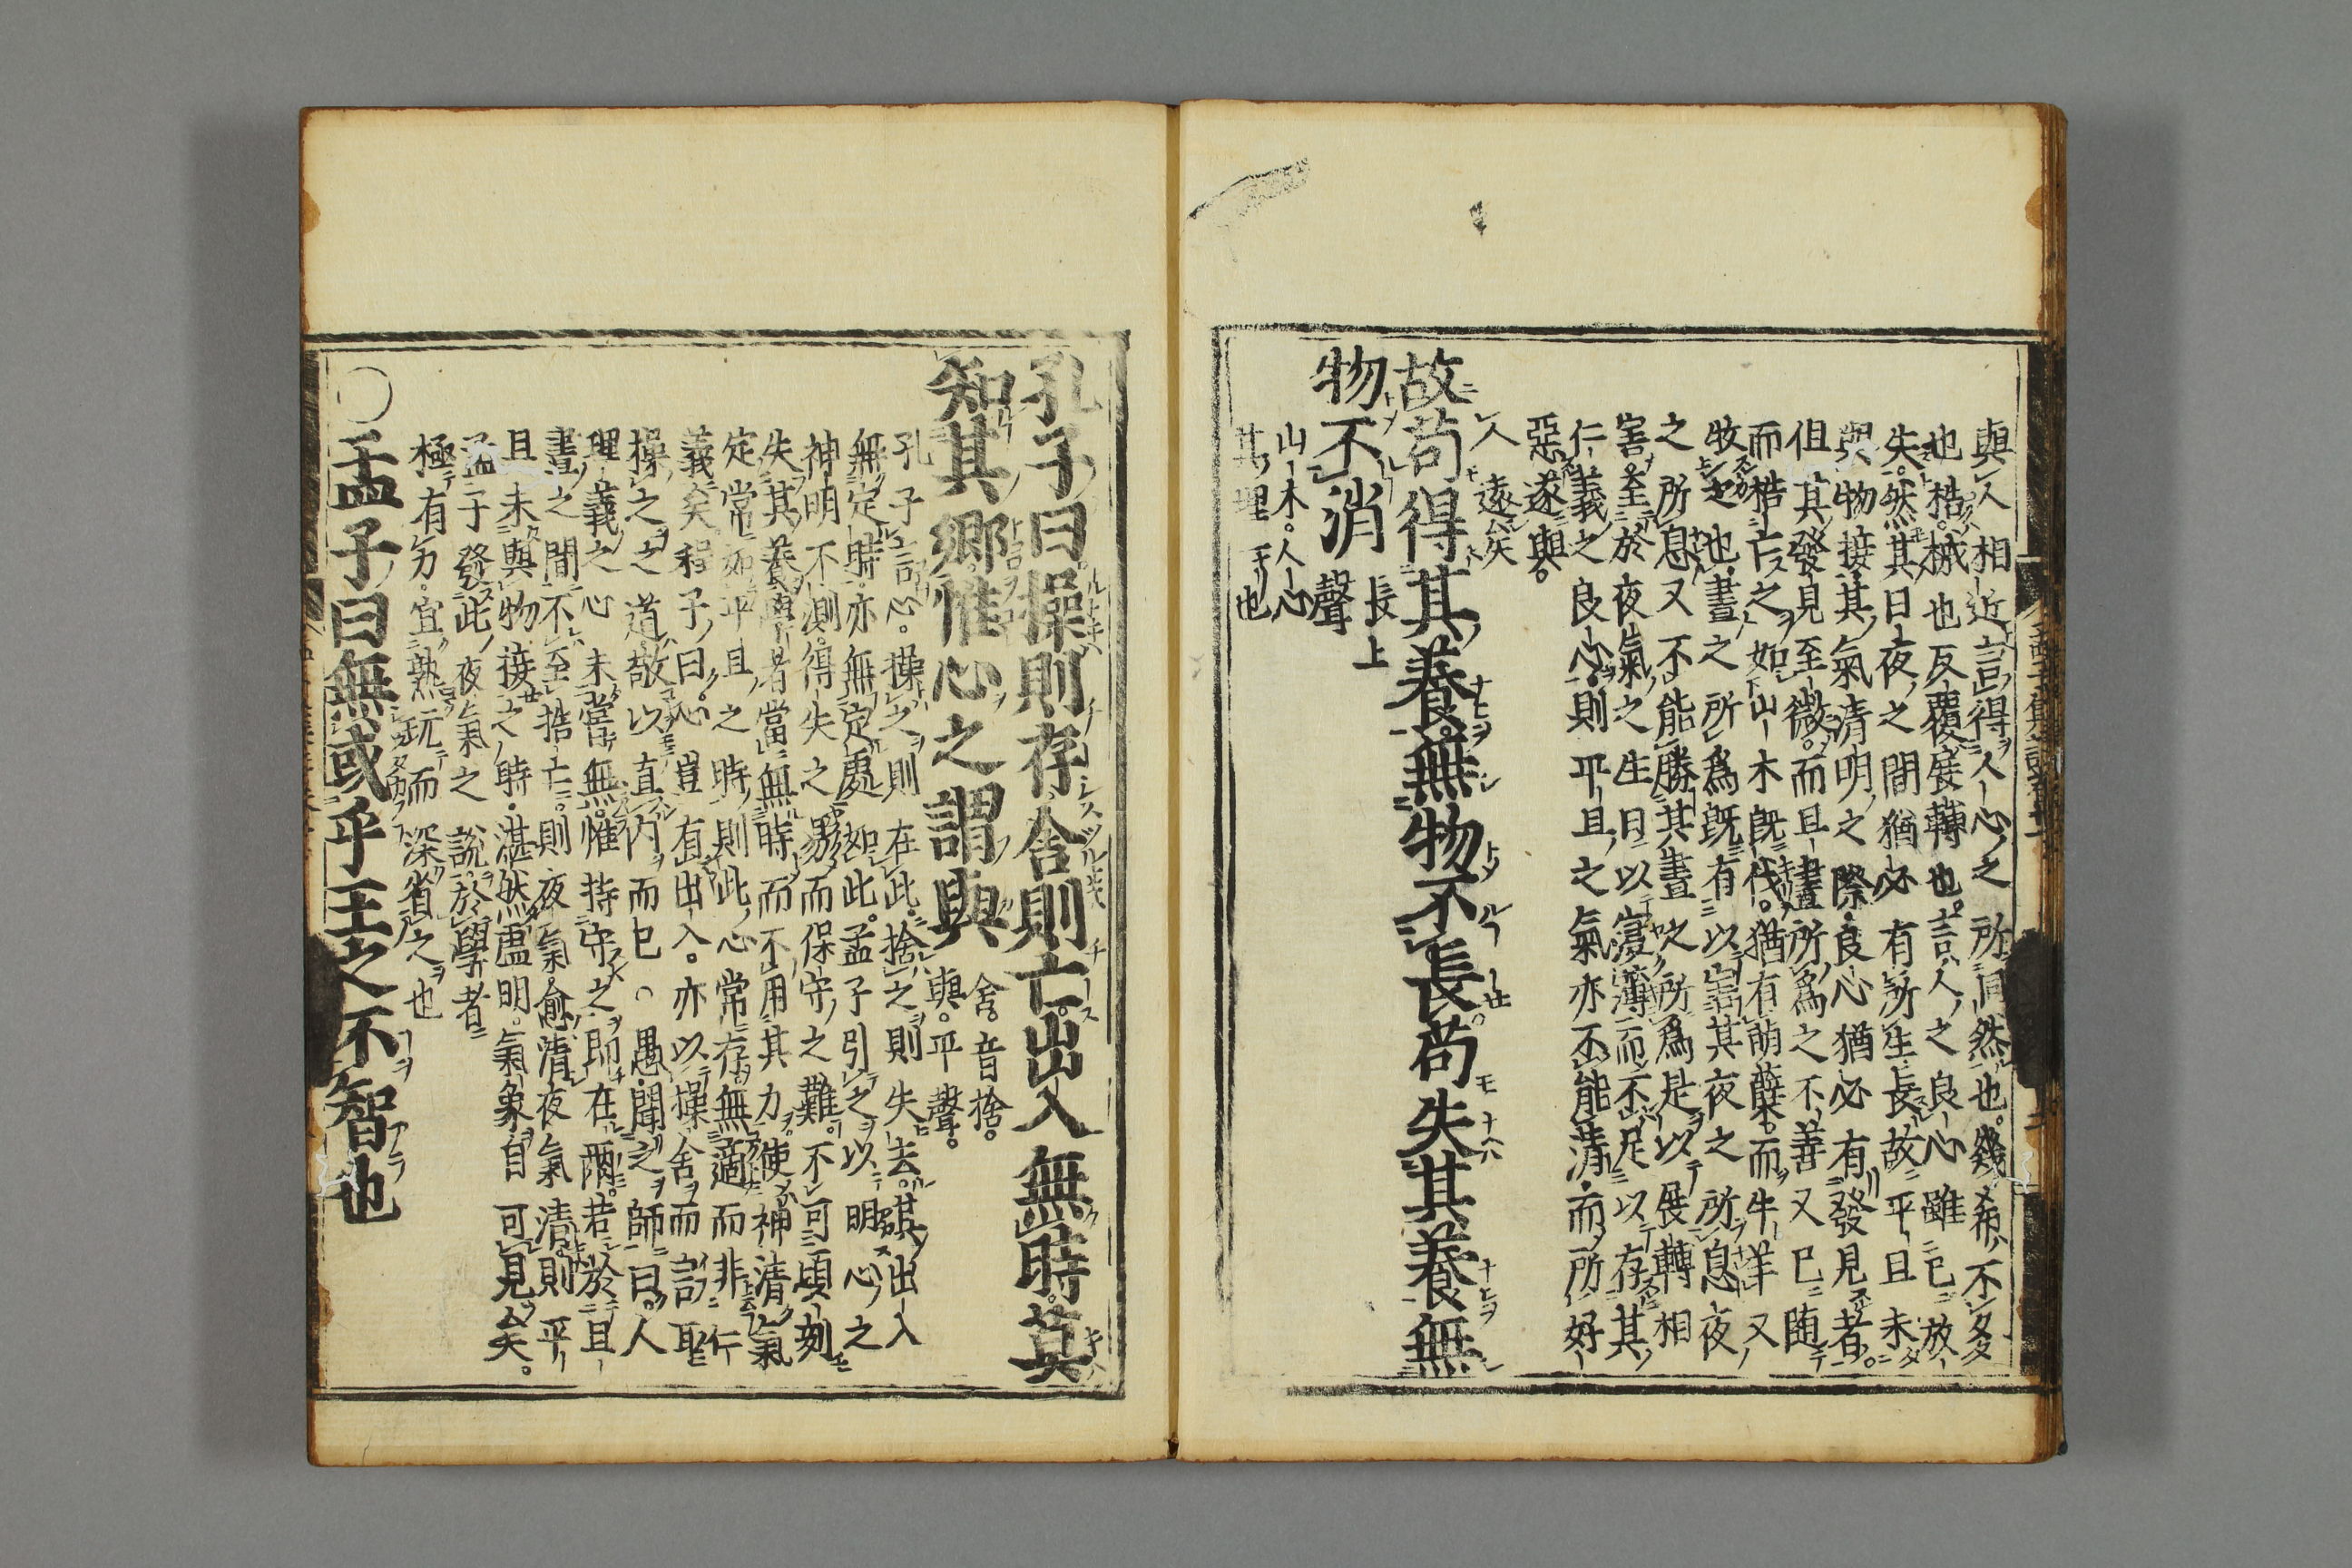 與人相近言得人心之所同然也幾希不多
也梏械也反覆展轉也言人之良心雖已放
失然其日夜之間猶必有所生長故平旦未
與物接其氣清明之際良心猶必有發見者
但其發見至微而旦晝所爲之不善又已随
而梏亡之如山木既伐猶有萌蘖而牛羊又
牧之也晝之所爲既有以害其夜之所息夜
之所息又不能勝其晝之所爲是以展轉相
害至於夜氣之生日以寖薄而不足以存其
仁義之良心則平旦之氣亦不能清而所好
惡遂與
人遠矣
故苟得其養無物不長苟失其養無
物不消 長上聲
山木人心
其理一也
孔子曰操則存舍則亡出入無時莫
知其郷惟心之謂與 舍音捨與平聲
孔子言心操之則在此捨之則失去其出入
無定時亦無定處如此孟子引之以明心之
神明不測得失之易而保守之難不可頃刻
失其養學者當無時而不用其力使神清氣
定常如平旦之時則此心常存無適而非仁
義矣程子曰心豈有出入亦以操舍而言耳
操之之道敬以直内而已○愚聞之師曰人
理義之心未甞無惟持守之即在爾若於旦
晝之間不至梏亡則夜氣愈清夜氣清則平
旦未與物接之時湛然虚明氣象自可見矣
孟子發此夜氣之說於學者
極有力宜熟玩而深省之也
○孟子曰無或乎王之不智也